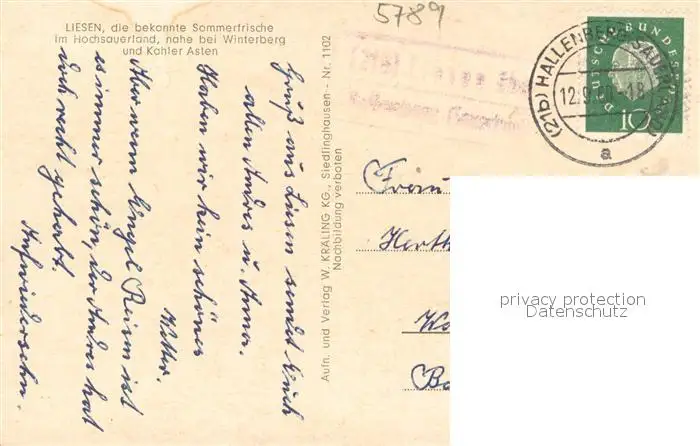 5789
LIESEN, die bekannte Sommerfrische
im Hochsauerland, nahe bei Winterberg
und Kahler Asten
Gruß aus Liesen sendt Euch
allen Andres u. Anna.
Haben wir kein schönes
Wetter.
Aber wenn Engel Reisen ist
es immer schön, der Andres hat
doch recht gehabt.
Aufwiedersehn.
Aufn. und Verlag W. KRÄLING KG., Siedlinghausen - Nr. 1102
Nachbildung verboten
(21b) Liesen über
DEUTSCHE BUNDESPOST
10
(21b) HALLENBERG (SAUERLAND)
12.9.60-18
a
Frau
Herth
privacy protection
Datenschutz